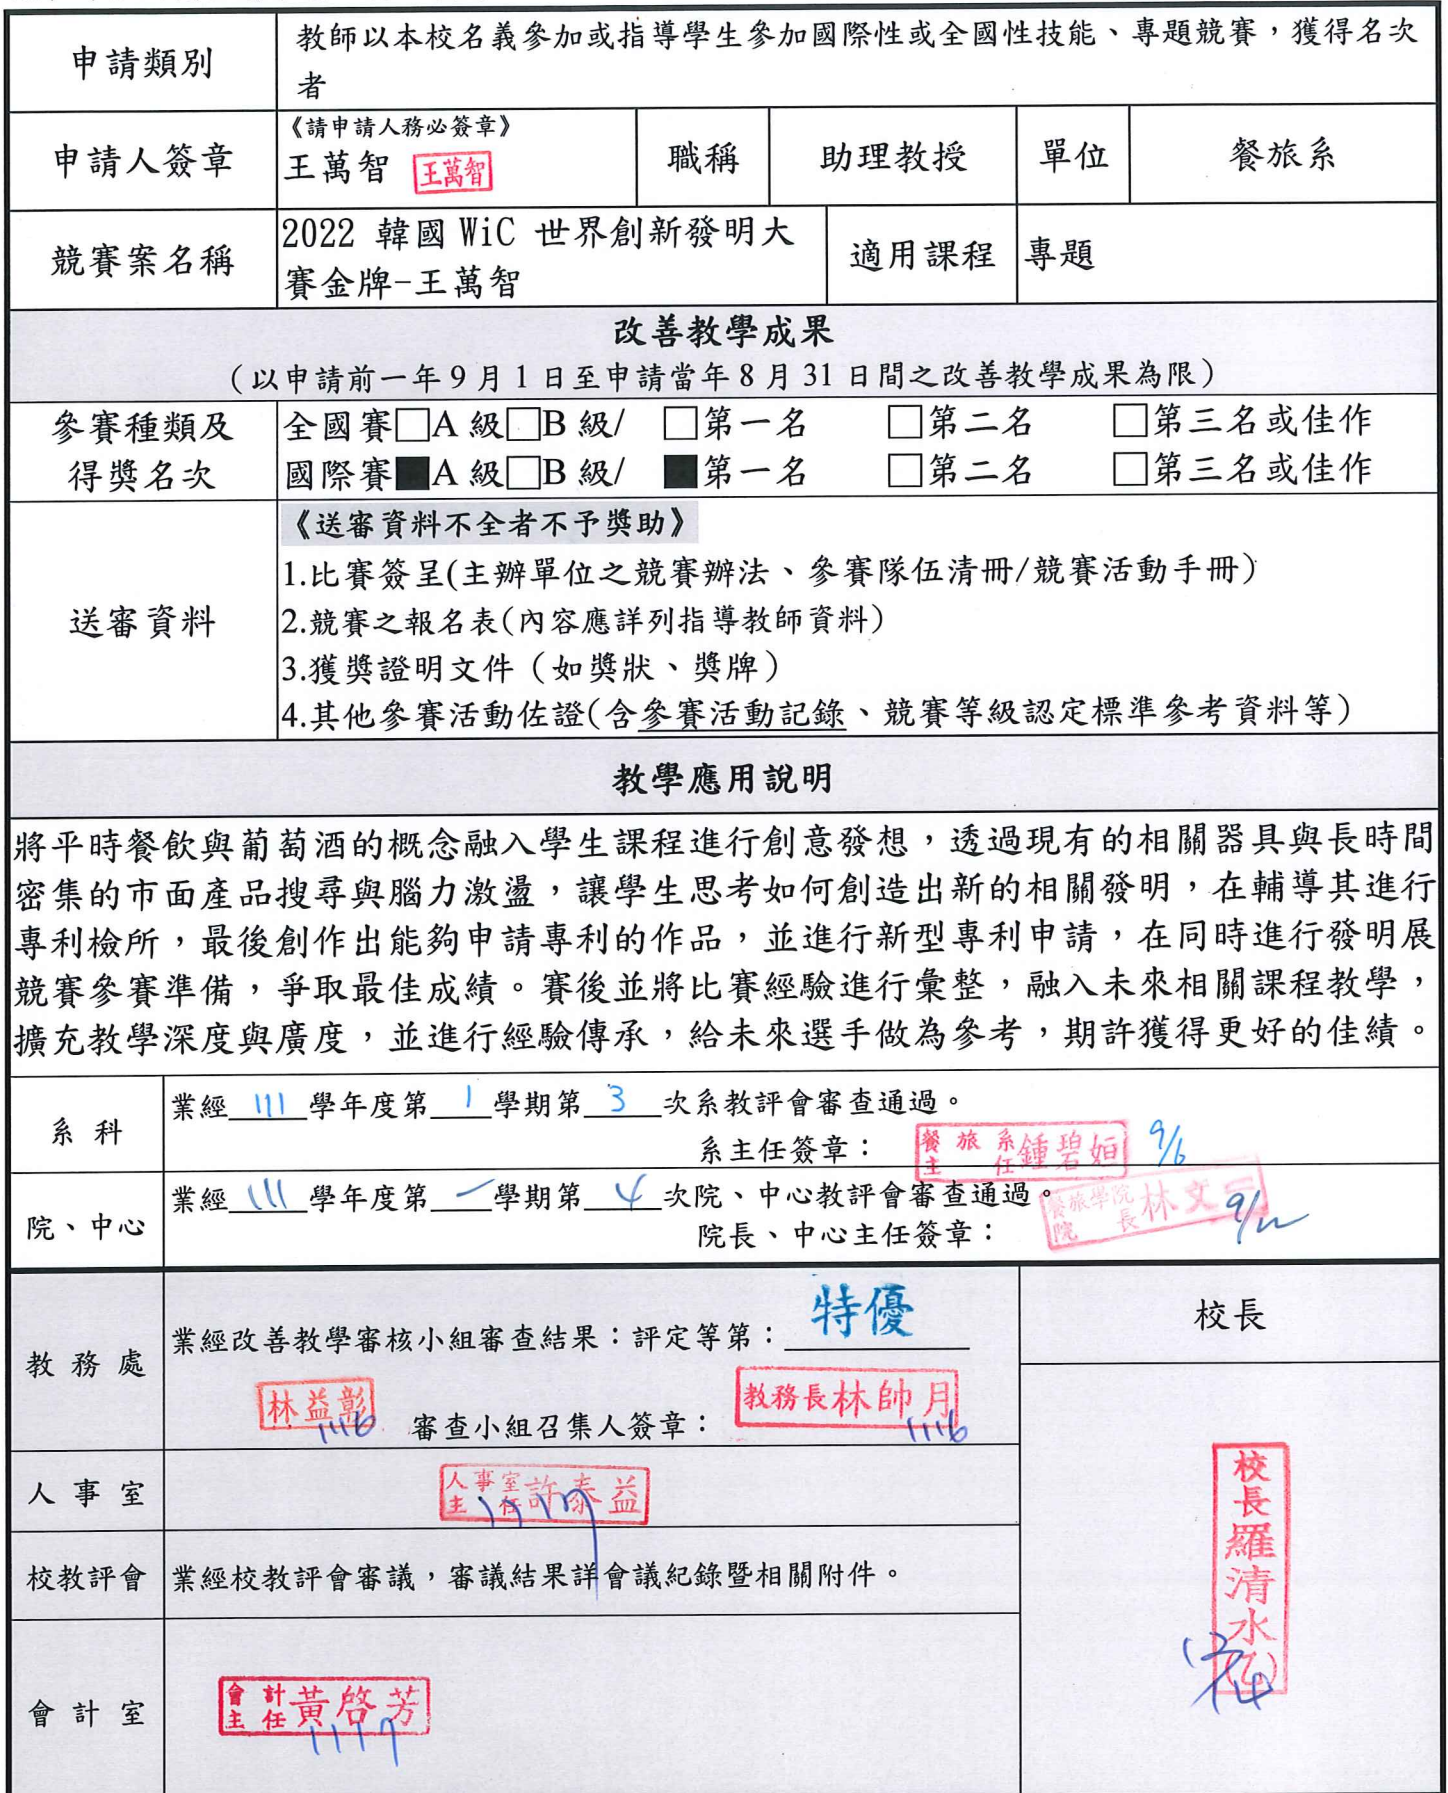 申請類別
教師以本校名義參加或指導學生參加國際性或全國性技能、專題競賽，獲得名次
者
申請人簽章
《請申請人務必簽章》
王萬智 王萬智
職稱
助理教授
單位
餐旅系
競賽案名稱
2022 韓國 WiC 世界創新發明大
賽金牌-王萬智
適用課程
專題
改善教學成果
（以申請前一年 9 月 1 日至申請當年 8 月 31 日間之改善教學成果為限）
參賽種類及
得獎名次
全國賽□A 級□B 級/ □第一名 □第二名 □第三名或佳作
國際賽■A 級□B 級/ ■第一名 □第二名 □第三名或佳作
送審資料
《送審資料不全者不予獎助》
1.比賽簽呈(主辦單位之競賽辦法、參賽隊伍清冊/競賽活動手冊)
2.競賽之報名表(內容應詳列指導教師資料)
3.獲獎證明文件（如獎狀、獎牌）
4.其他參賽活動佐證(含參賽活動記錄、競賽等級認定標準參考資料等)
教學應用說明
將平時餐飲與葡萄酒的概念融入學生課程進行創意發想，透過現有的相關器具與長時間
密集的市面產品搜尋與腦力激盪，讓學生思考如何創造出新的相關發明，在輔導其進行
專利檢所，最後創作出能夠申請專利的作品，並進行新型專利申請，在同時進行發明展
競賽參賽準備，爭取最佳成績。賽後並將比賽經驗進行彙整，融入未來相關課程教學，
擴充教學深度與廣度，並進行經驗傳承，給未來選手做為參考，期許獲得更好的佳績。
系 科
業經 111 學年度第 1 學期第 3 次系教評會審查通過。
系主任簽章： 餐旅系主任鍾碧姮 9/6
院、中心
業經 111 學年度第 一 學期第 4 次院、中心教評會審查通過。
院長、中心主任簽章： 餐旅學院院長林文
教 務 處
業經改善教學審核小組審查結果：評定等第：特優
林益彰 1116 審查小組召集人簽章： 教務長林帥月 1116
校長
人 事 室
人事室主任許泰益
校教評會
業經校教評會審議，審議結果詳會議紀錄暨相關附件。
校長羅清水(乙)
會 計 室
會計主任黃啓芳 1117